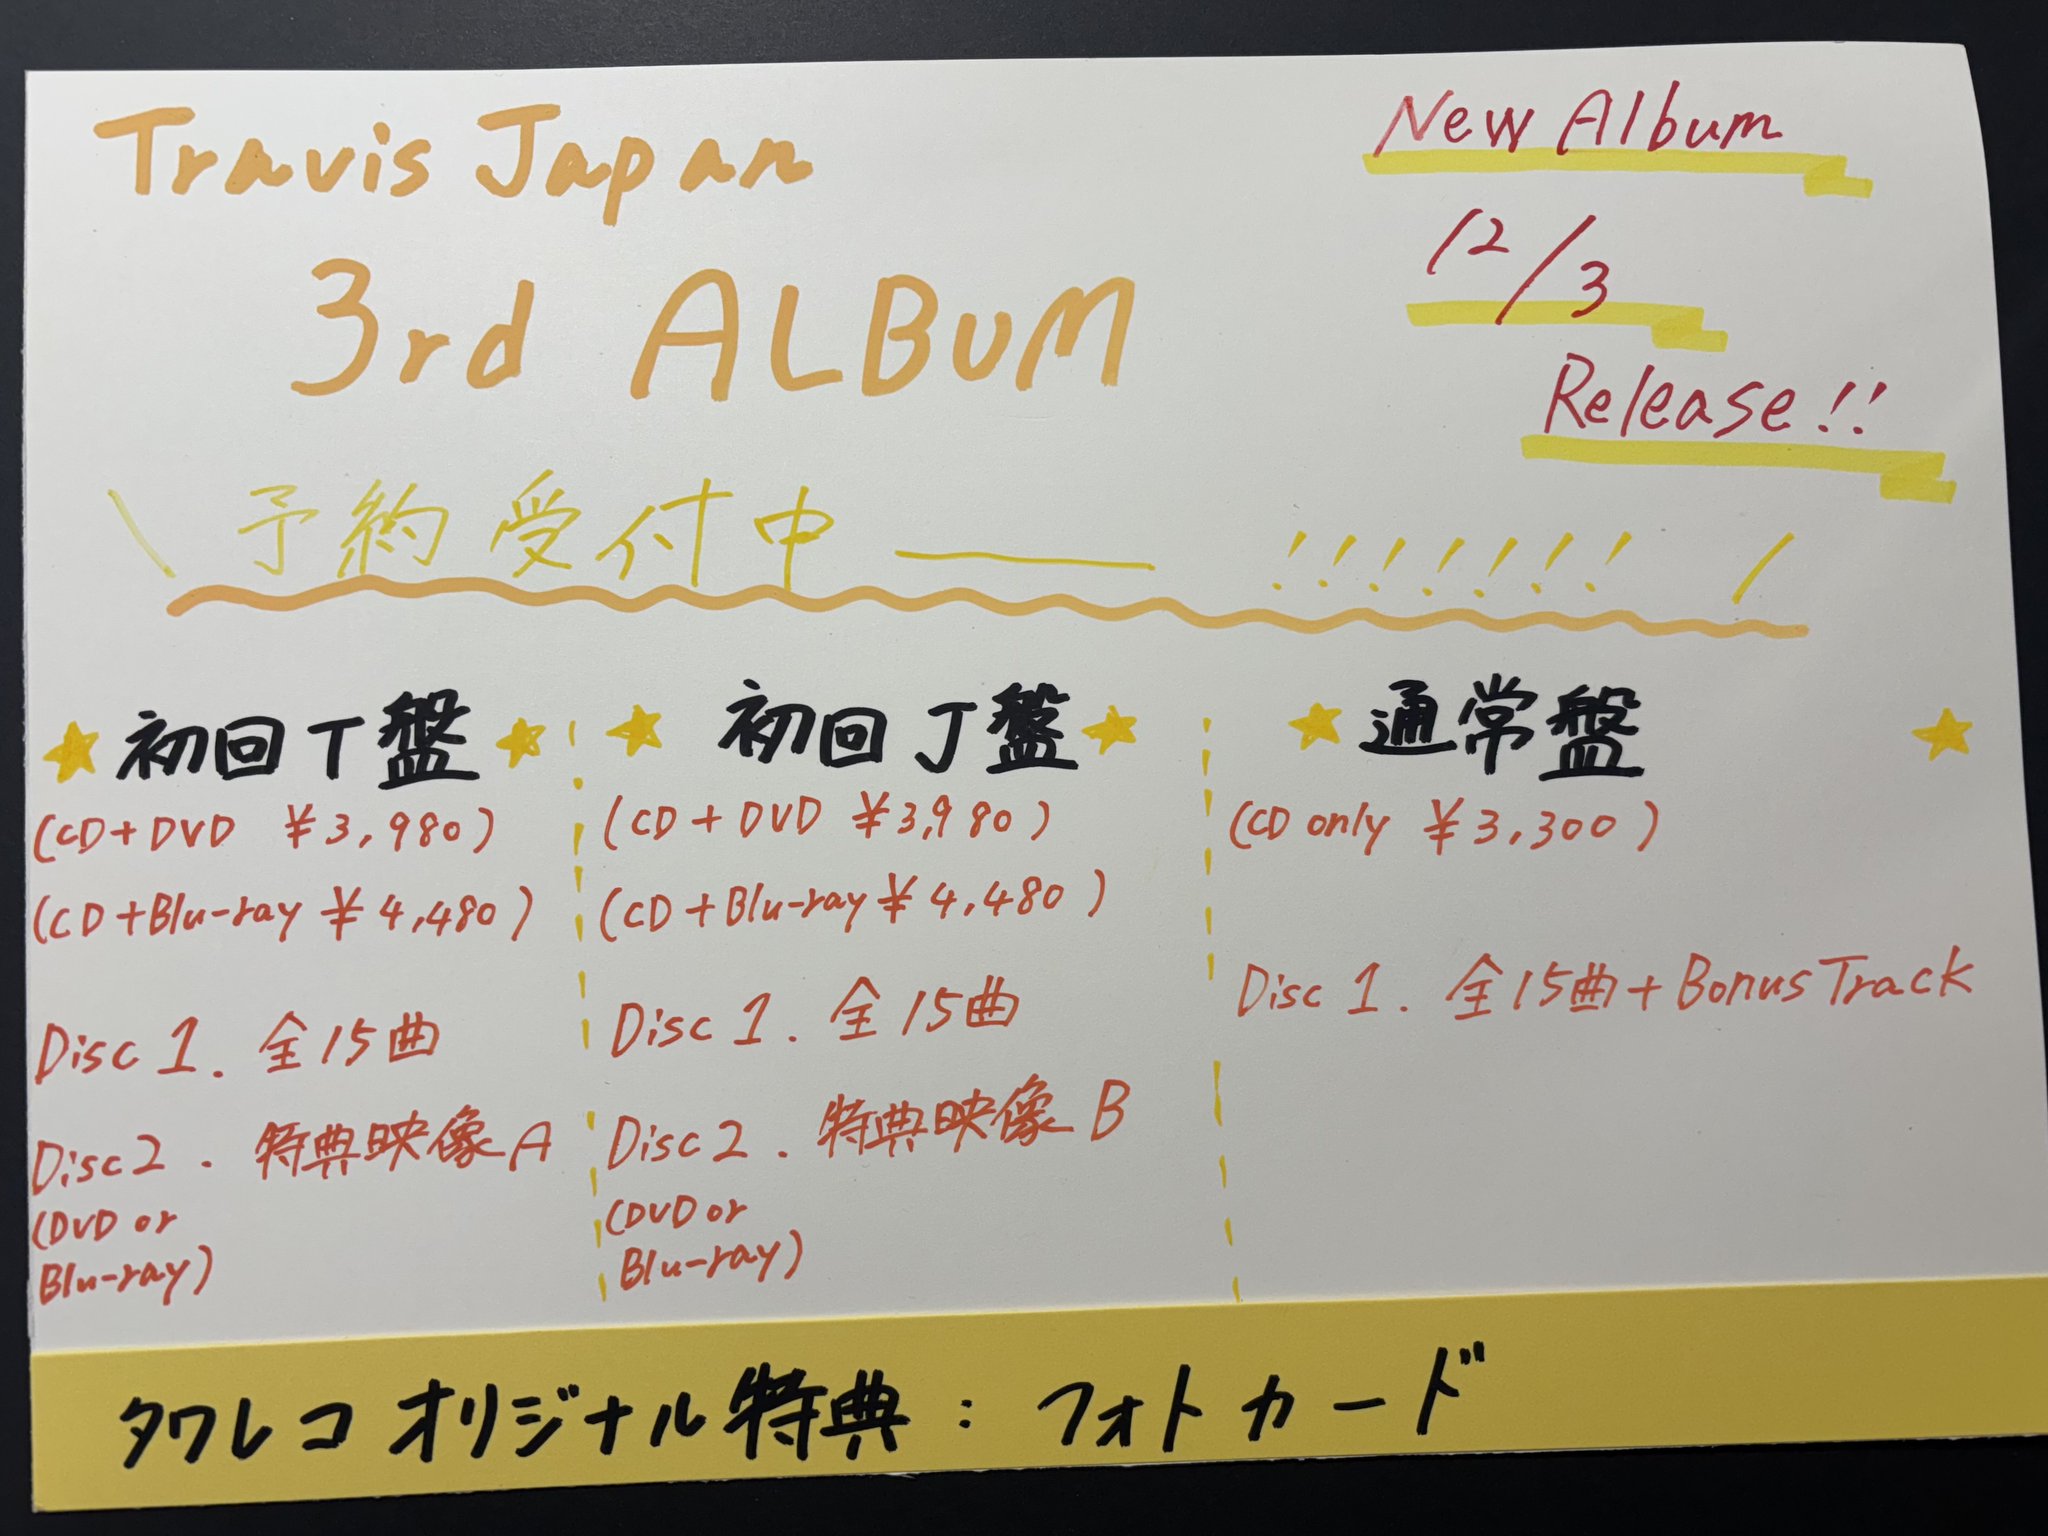 Travis Japan
3rd ALBUM
New Album
12/3
Release!!
\ 予約受付中 ー !!!!!!! /
★ 初回T盤 ★
(CD+DVD ¥3,980)
(CD+Blu-ray ¥4,480)
Disc 1. 全15曲
Disc2. 特典映像A
(DVD or
Blu-ray)
★ 初回J盤 ★
(CD+DVD ¥3,980)
(CD+Blu-ray ¥4,480)
Disc 1. 全15曲
Disc2. 特典映像B
(DVD or
Blu-ray)
★ 通常盤 ★
(CD only ¥3,300)
Disc 1. 全15曲+Bonus Track
タワレコ オリジナル特典:フォトカード